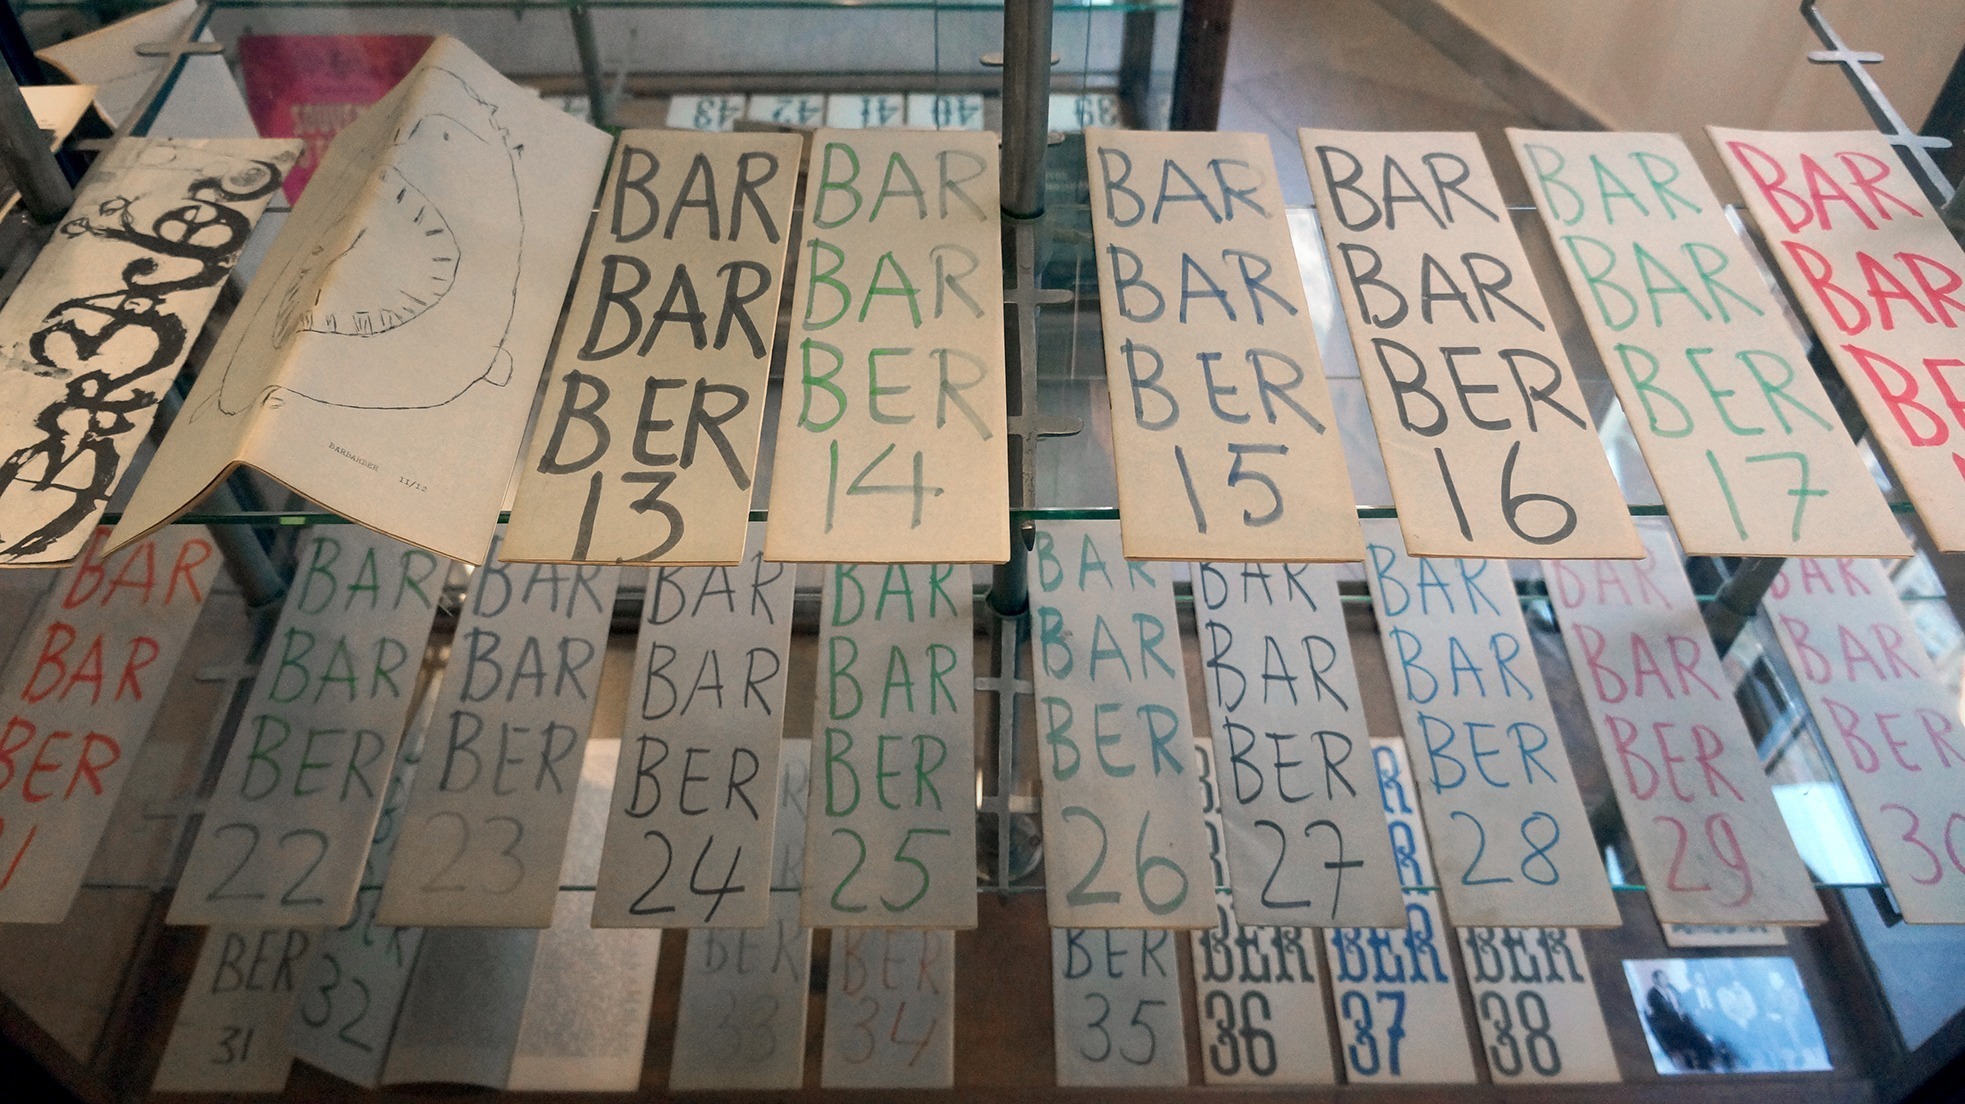 43
42
41
40
39
SOUVE
BARBARBER
11/12
BAR
BAR
BER
13
BAR
BAR
BER
14
BAR
BAR
BER
15
BAR
BAR
BER
16
BAR
BAR
BER
17
BAR
BAR
BE
BAR
BAR
BER
BAR
BAR
BER
22
BAR
BAR
BER
23
BAR
BAR
BER
24
BAR
BAR
BER
25
BAR
BAR
BER
26
BAR
BAR
BER
27
BAR
BAR
BER
28
BAR
BAR
BER
29
BAR
BAR
BER
30
BER
31
32
BER
33
BER
34
BER
35
BER
36
BER
37
BER
38